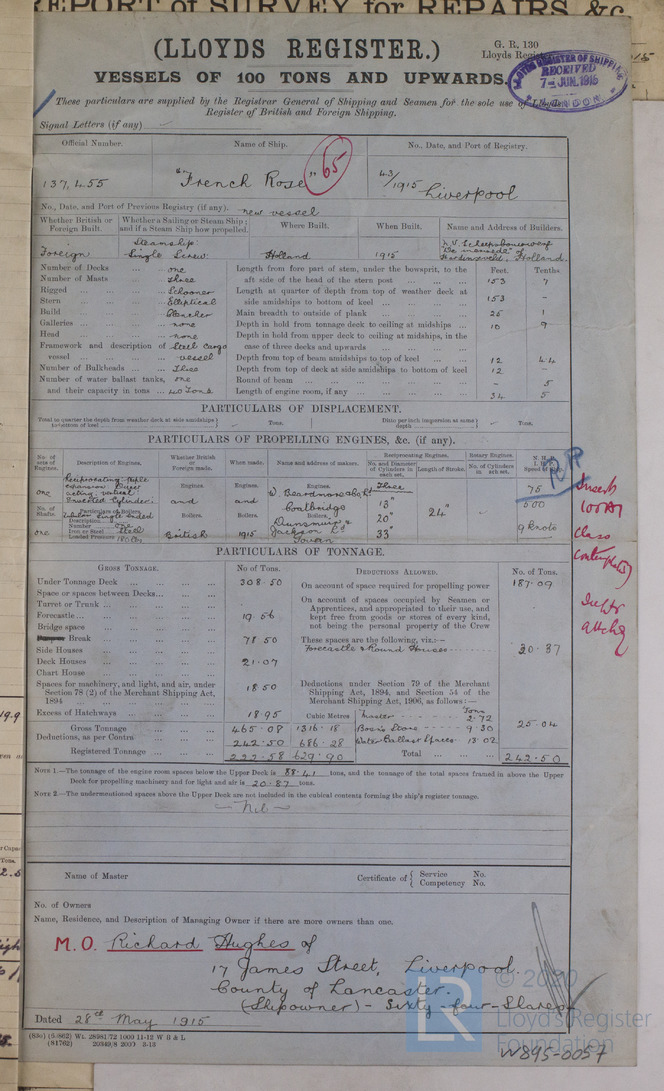 REPORT of SURVEY for REPAIRS, &c.
(LLOYDS REGISTER.)
G. R. 130
Lloyds Register
VESSELS OF 100 TONS AND UPWARDS.
LLOYDS REGISTER OF SHIPPING
RECEIVED
7-JUN.1915
LONDON
These particulars are supplied by the Registrar General of Shipping and Seamen for the sole use of Lloyds
Register of British and Foreign Shipping.
Signal Letters (if any)
Official Number. Name of Ship. No., Date, and Port of Registry.
137,455 "French Rose" 65 43/1915 Liverpool
No., Date, and Port of Previous Registry (if any). New vessel
Whether British or Foreign Built. Whether a Sailing or Steam Ship; and if a Steam Ship how propelled. Where Built. When Built. Name and Address of Builders.
Foreign Steamship: Single Screw Holland 1915 Hardinxveld, Holland.
Number of Decks ... one Length from fore part of stem, under the bowsprit, to the Feet. Tenths.
Number of Masts ... Three aft side of the head of the stern post ... 153 7
Rigged ... Schooner Length at quarter of depth from top of weather deck at
Stern ... Elliptical side amidships to bottom of keel ... 153 -
Build ... Clencher Main breadth to outside of plank ... 25 1
Galleries ... none Depth in hold from tonnage deck to ceiling at midships ... 10 9
Head ... none Depth in hold from upper deck to ceiling at midships, in the
Framework and description of Steel Cargo case of three decks and upwards ...
vessel ... vessel Depth from top of beam amidships to top of keel ... 12 44
Number of Bulkheads ... Three Depth from top of deck at side amidships to bottom of keel 12 -
Number of water ballast tanks, one Round of beam ... - 5
and their capacity in tons ... 40 Tons Length of engine room, if any ... 34 5
PARTICULARS OF DISPLACEMENT.
Total to quarter the depth from weather deck at side amidships to bottom of keel Tons. Ditto per inch immersion at same depth Tons.
PARTICULARS OF PROPELLING ENGINES, &c. (if any).
No. of sets of Engines. Description of Engines. Whether British or Foreign made. When made. Name and address of makers. Reciprocating Engines. Rotary Engines. N. H. P.
No. and Diameter of Cylinders in each set. Length of Stroke. No. of Cylinders in each set.
one Reciprocating triple expansion direct acting vertical Inverted Cylinder: Engines. and Engines. and Engines. W. Beardmore & Co Ld Coatbridge Three 13" 20" 33" 24" 75 500 9 knots
No. of Shafts. Particulars of Boilers. Boilers. Boilers. Boilers.
Description Tubular Single ended
Number one
one Iron or Steel Steel British 1915 Dunsmuir & Jackson Ld Govan
Loaded Pressure 180 lbs
Insert
100A1
Class
contemplated
PARTICULARS OF TONNAGE.
GROSS TONNAGE. No of Tons. DEDUCTIONS ALLOWED. No. of Tons.
Under Tonnage Deck ... 308.50 On account of space required for propelling power 187.09
Space or spaces between Decks ... On account of spaces occupied by Seamen or
Turret or Trunk ... Apprentices, and appropriated to their use, and
Forecastle ... 19.56 kept free from goods or stores of every kind,
Bridge space not being the personal property of the Crew
Break ... 78.50 These spaces are the following, viz.:—
Side Houses ... Forecastle & Round Houses 30.37
Deck Houses ... 21.07
Chart House ...
Spaces for machinery, and light, and air, under Deductions under Section 79 of the Merchant
Section 78 (2) of the Merchant Shipping Act, 18.50 Shipping Act, 1894, and Section 54 of the
1894 ... Merchant Shipping Act, 1906, as follows:—
Excess of Hatchways ... 18.95 Cubic Metres Master Tons 2.72
Gross Tonnage ... 465.08 1316.18 Bosn's Store 9.30 25.04
Deductions, as per Contra ... 242.50 686.28 Water Ballast Spaces 13.02
Registered Tonnage ... 222.58 629.90 Total ... 242.50
NOTE 1.—The tonnage of the engine room spaces below the Upper Deck is 88.41 tons, and the tonnage of the total spaces framed in above the Upper
Deck for propelling machinery and for light and air is 20.87 tons.
NOTE 2.—The undermentioned spaces above the Upper Deck are not included in the cubical contents forming the ship's register tonnage.
Nil
Name of Master Certificate of { Service No.
Competency No.
No. of Owners
Name, Residence, and Description of Managing Owner if there are more owners than one.
M.O. Richard Hughes of
17 James Street, Liverpool.
County of Lancaster.
(Shipowner) - Sixty-four-Shares
Dated 28th May 1915
© 2020
Lloyd's Register
Foundation
LR
W895-0057